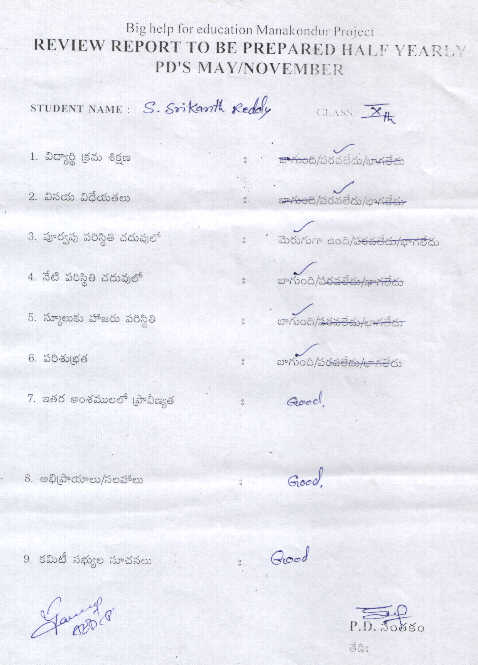 Big help for education Manakondur Project
REVIEW REPORT TO BE PREPARED HALF YEARLY
PD'S MAY/NOVEMBER
STUDENT NAME : S. Srikanth Reddy CLASS Xth
1. విద్యార్థి క్రమ శిక్షణ : బాగుంది/పరవలేదు/బాగలేదు
2. వినయ విధేయతలు : బాగుంది/పరవలేదు/బాగలేదు
3. పూర్వపు పరిస్థితి చదువులో : మెరుగుగా ఉంది/పరవలేదు/బాగలేదు
4. నేటి పరిస్థితి చదువులో : బాగుంది/పరవలేదు/బాగలేదు
5. స్కూలుకు హాజరు పరిస్థితి : బాగుంది/పరవలేదు/బాగలేదు
6. పరిశుభ్రత : బాగుంది/పరవలేదు/బాగలేదు
7. ఇతర అంశములలో ప్రావీణ్యత : Good.
8. అభిప్రాయాలు/సలహాలు : Good.
9. కమిటీ సభ్యుల సూచనలు : Good
P.D. సంతకం
తేది: